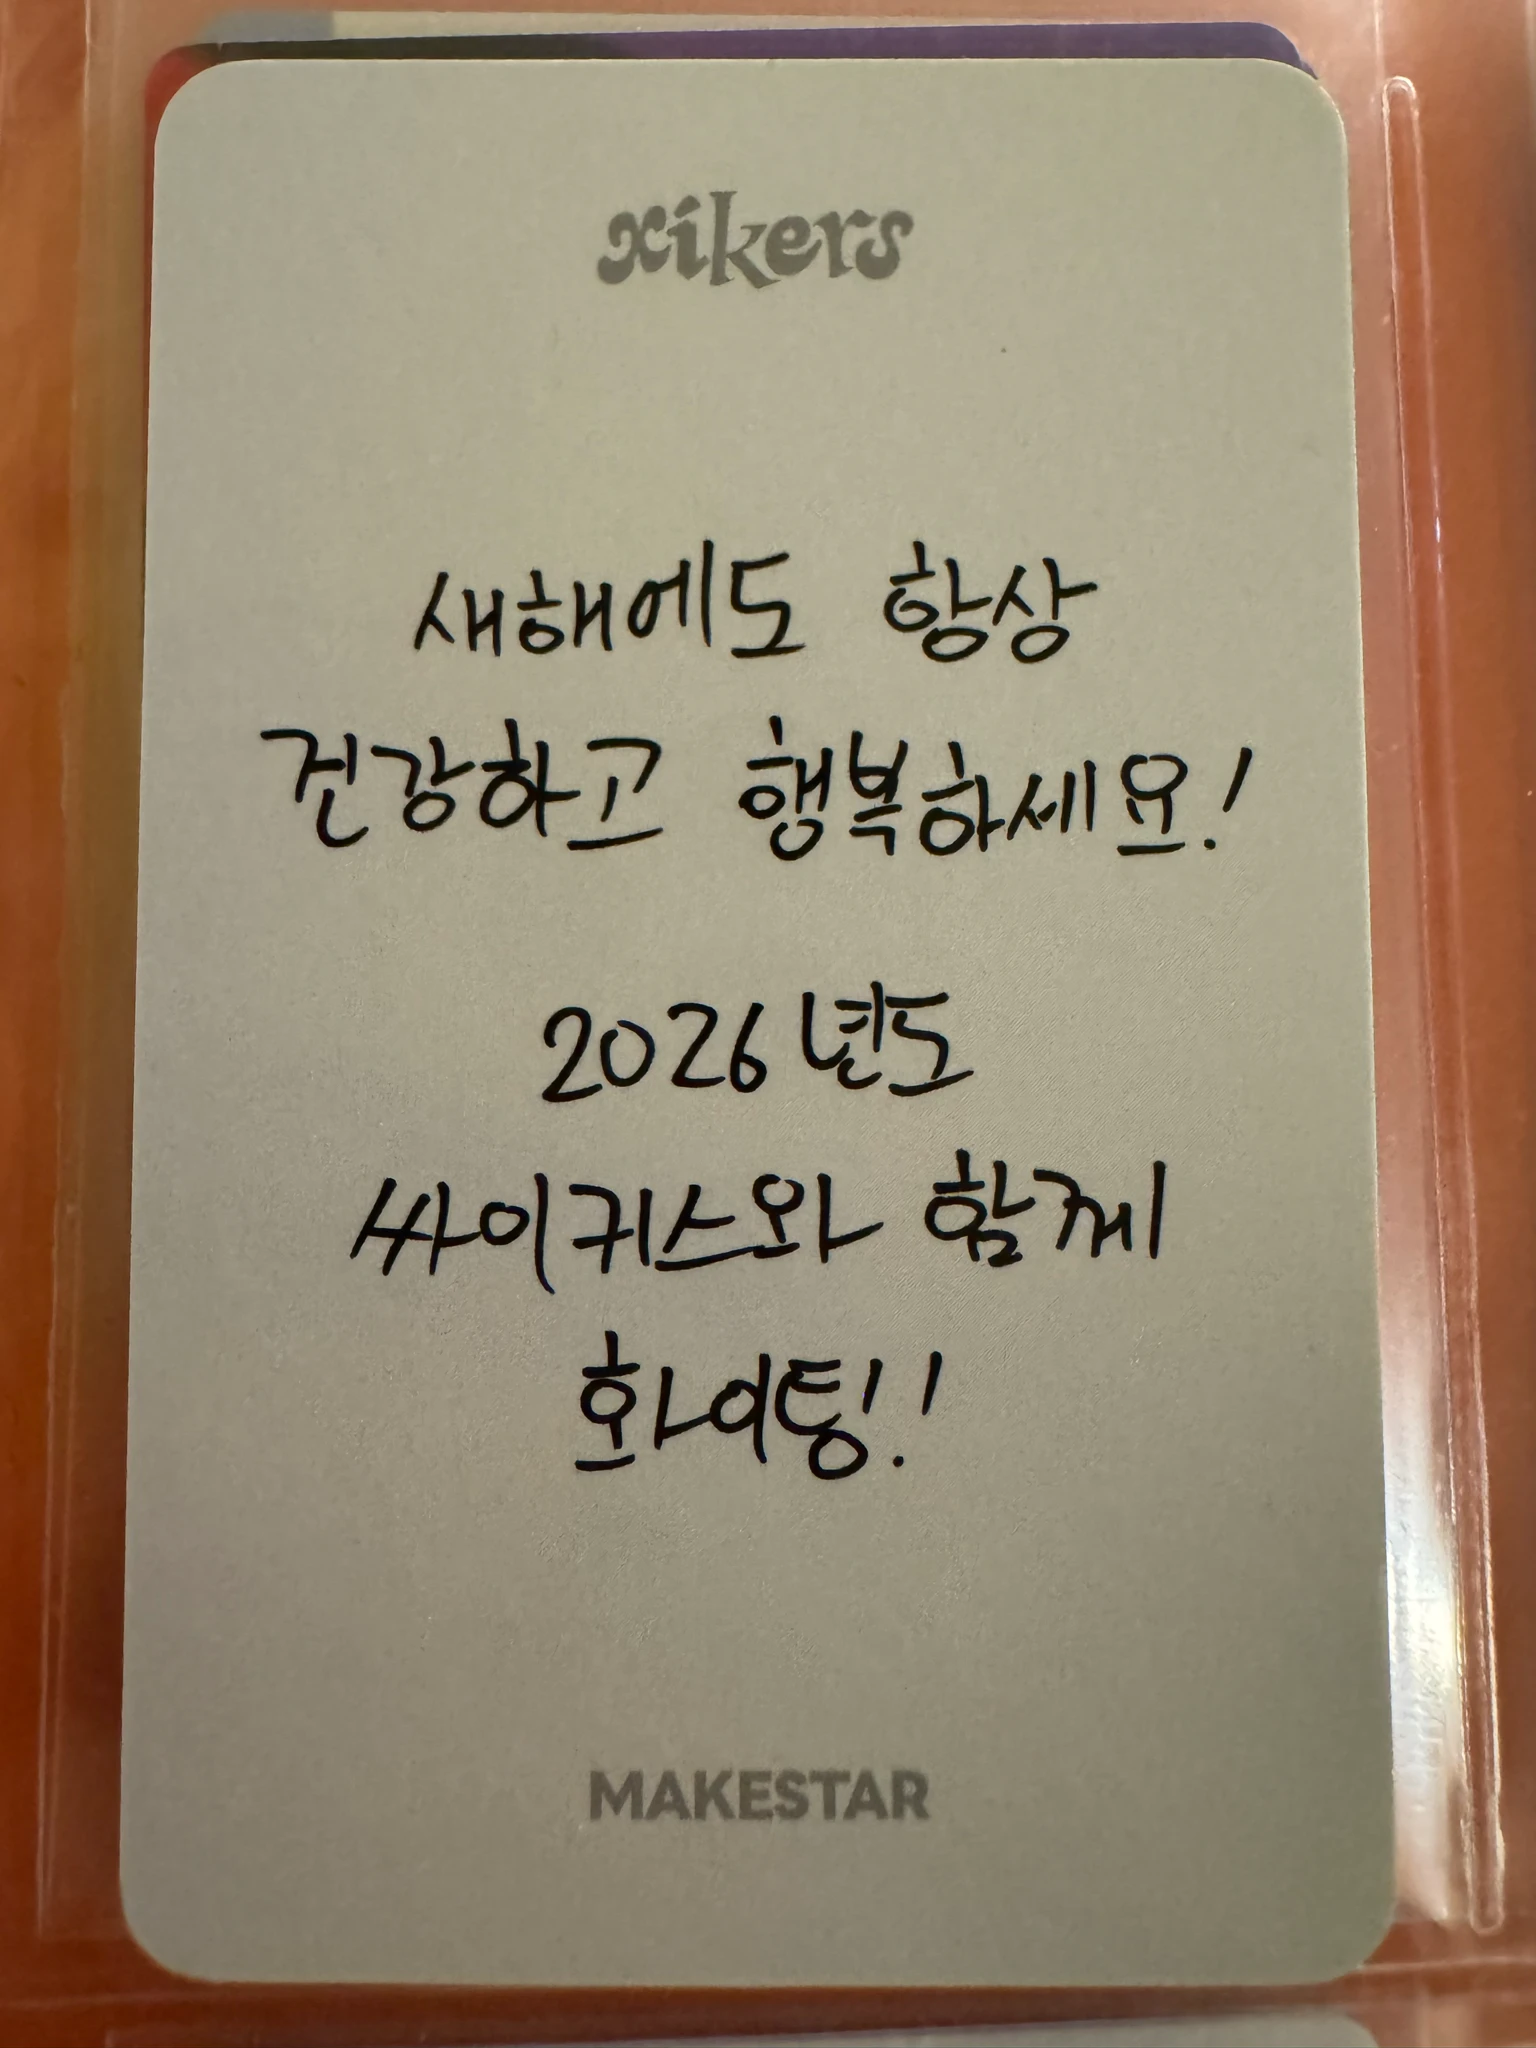 xikers
새해에도 항상
건강하고 행복하세요!
2026년도
싸이커스와 함께
화이팅!!
MAKESTAR